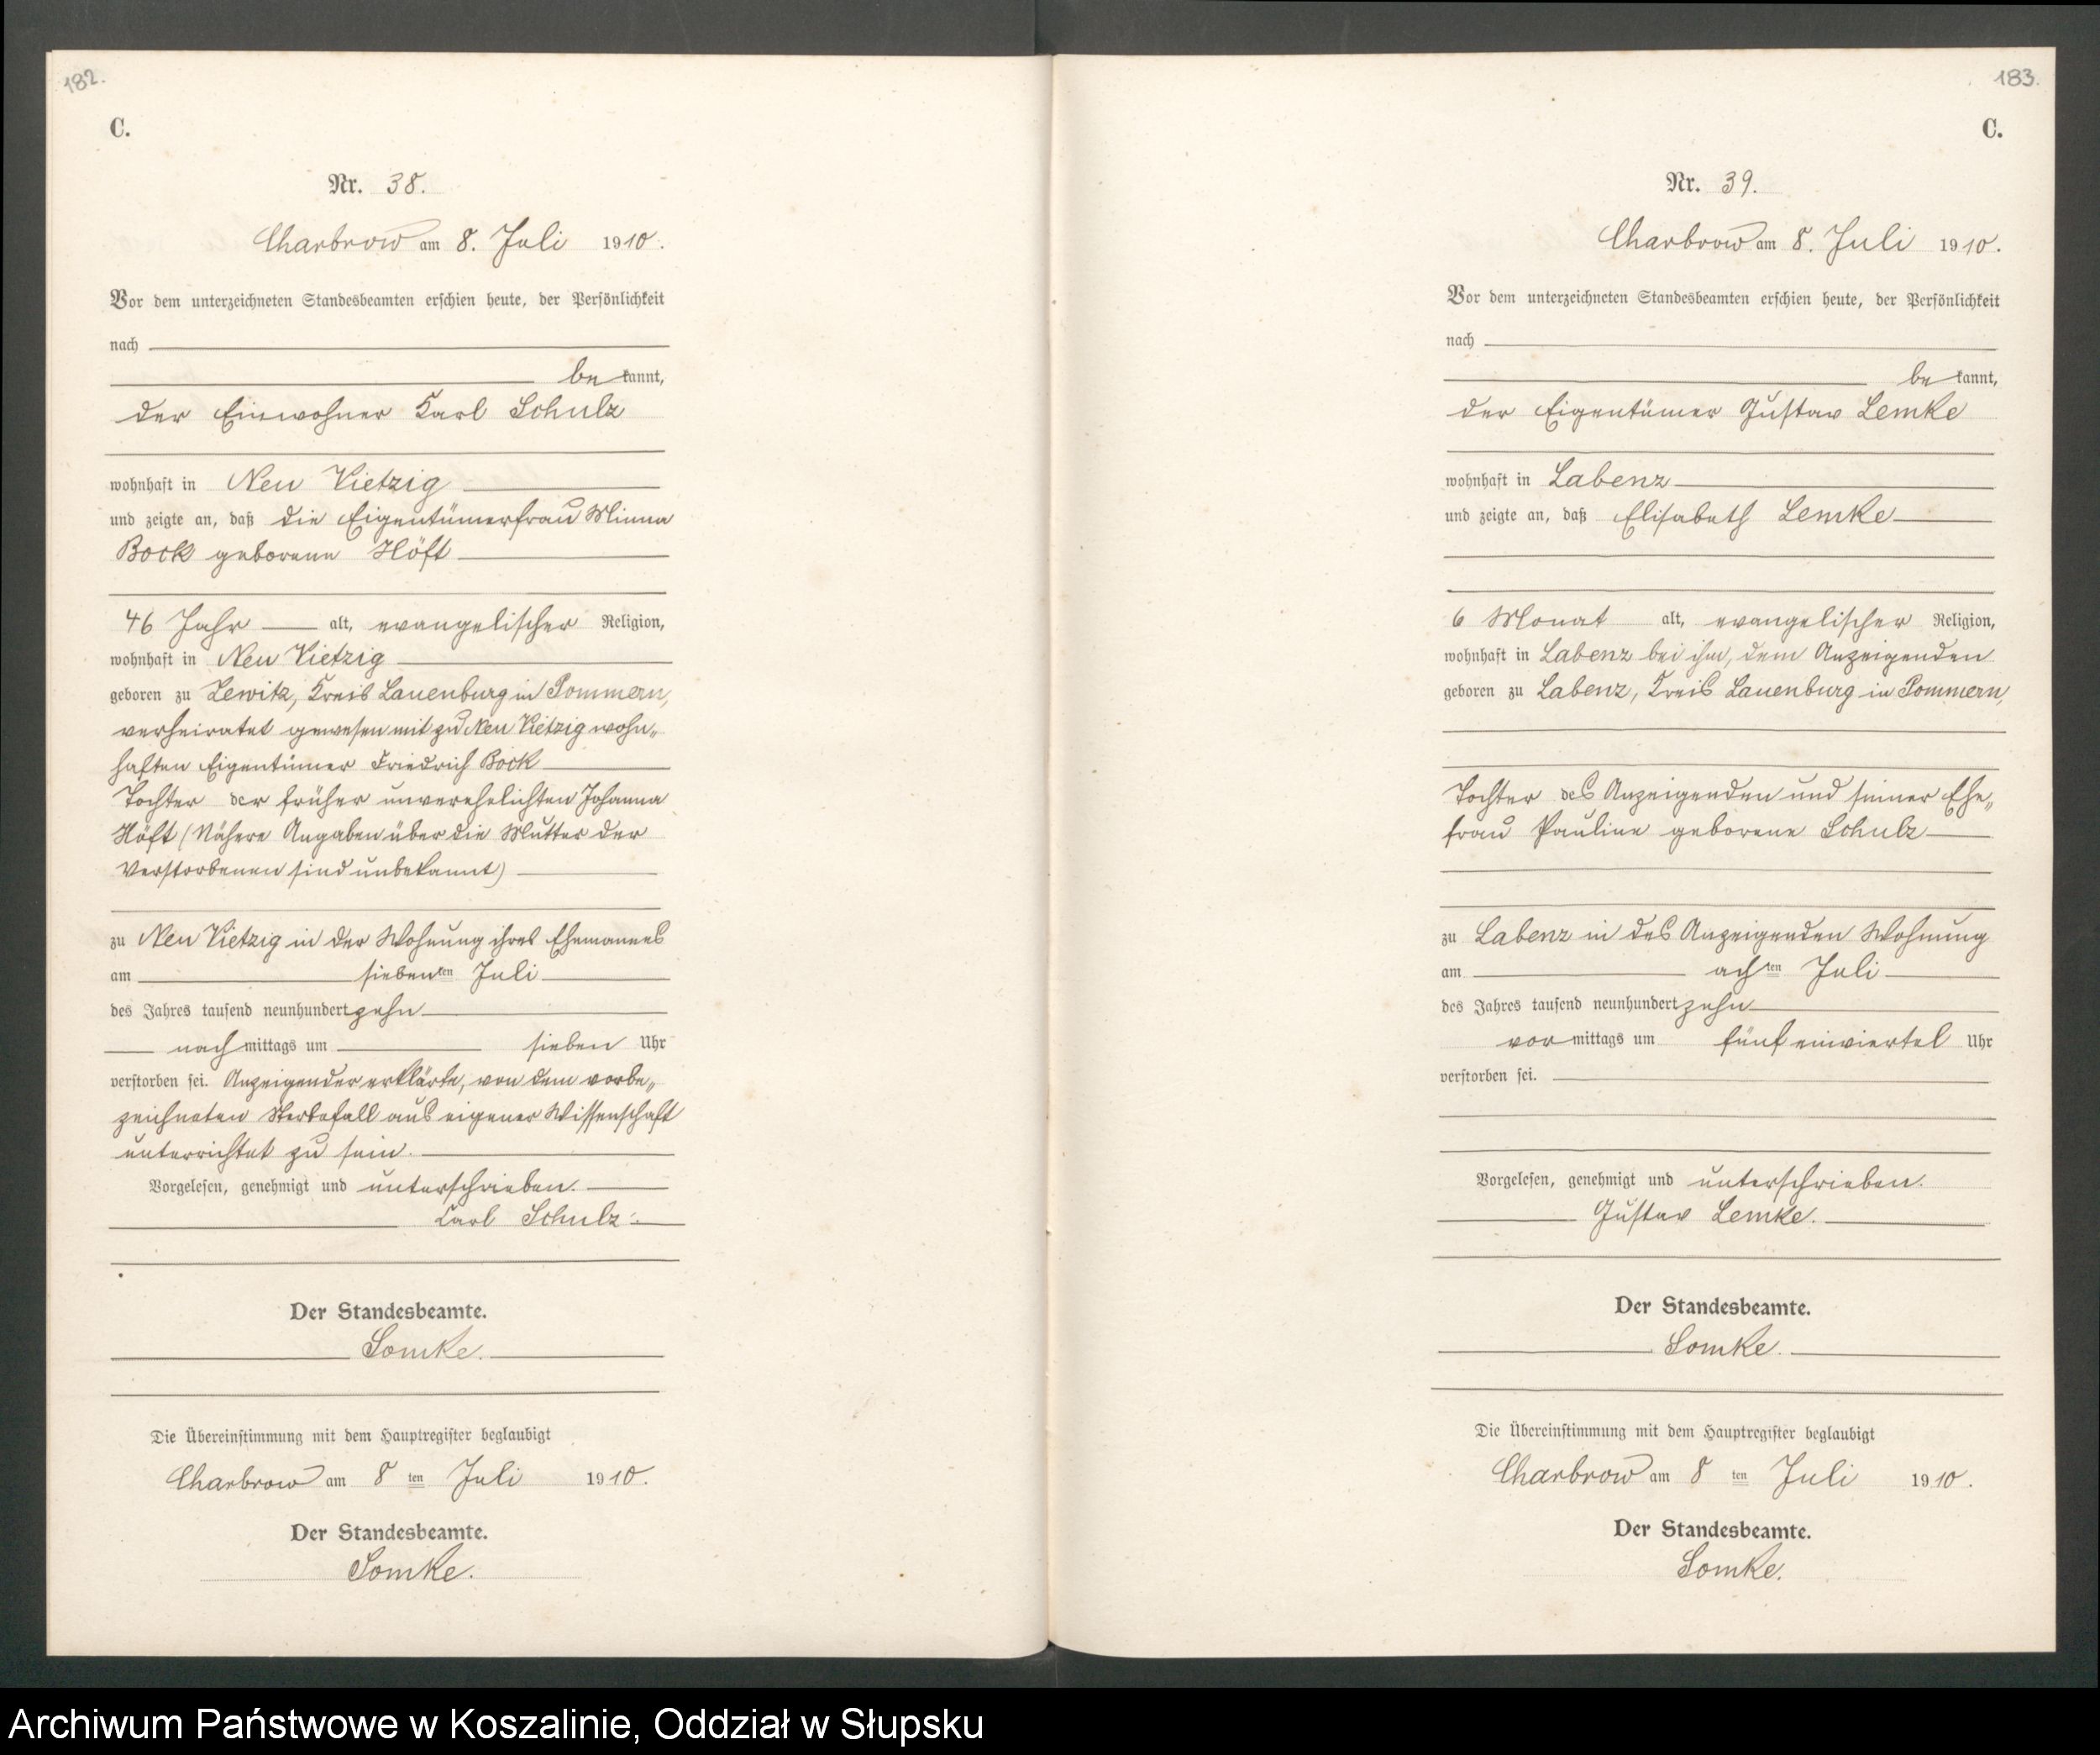 182.
C.
Nr. 38.
Charbrow am 8. Juli 1910.
Vor dem unterzeichneten Standesbeamten erschien heute, der Persönlichkeit
nach
be kannt,
der Einwohner Karl Schulz
wohnhaft in Neu Vietzig
und zeigte an, daß die Eigentümerfrau Minna
Bock geborene Höft
46 Jahr alt, evangelischer Religion,
wohnhaft in Neu Vietzig
geboren zu Zewitz, Kreis Lauenburg in Pommern,
verheiratet gewesen mit zu Neu Vietzig wohn„
haften Eigentümer Friedrich Bock
Tochter der früher unverehelichten Johanna
Höft (Nähere Angaben über die Mutter der
Verstorbenen sind unbekannt)
zu Neu Vietzig in der Wohnung ihres Ehemannes
am siebenten Juli
des Jahres tausend neunhundert zehn
nach mittags um sieben Uhr
verstorben sei. Anzeigender erklärte, von dem vorbe„
zeichneten Sterbefall aus eigener Wissenschaft
unterrichtet zu sein.
Vorgelesen, genehmigt und unterschrieben.
Karl Schulz.
Der Standesbeamte.
Somke.
Die Übereinstimmung mit dem Hauptregister beglaubigt
Charbrow am 8 ten Juli 1910.
Der Standesbeamte.
Somke.
183.
C.
Nr. 39.
Charbrow am 8. Juli 1910.
Vor dem unterzeichneten Standesbeamten erschien heute, der Persönlichkeit
nach
be kannt,
der Eigentümer Gustav Lemke
wohnhaft in Labenz
und zeigte an, daß Elisabeth Lemke
6 Monat alt, evangelischer Religion,
wohnhaft in Labenz bei ihm, dem Anzeigenden
geboren zu Labenz, Kreis Lauenburg in Pommern,
Tochter des Anzeigenden und seiner Ehe„
frau Pauline geborene Schulz
zu Labenz in des Anzeigenden Wohnung
am achten Juli
des Jahres tausend neunhundert zehn
vor mittags um fünf einviertel Uhr
verstorben sei.
Vorgelesen, genehmigt und unterschrieben.
Gustav Lemke.
Der Standesbeamte.
Somke.
Die Übereinstimmung mit dem Hauptregister beglaubigt
Charbrow am 8 ten Juli 1910.
Der Standesbeamte.
Somke.
Archiwum Państwowe w Koszalinie, Oddział w Słupsku